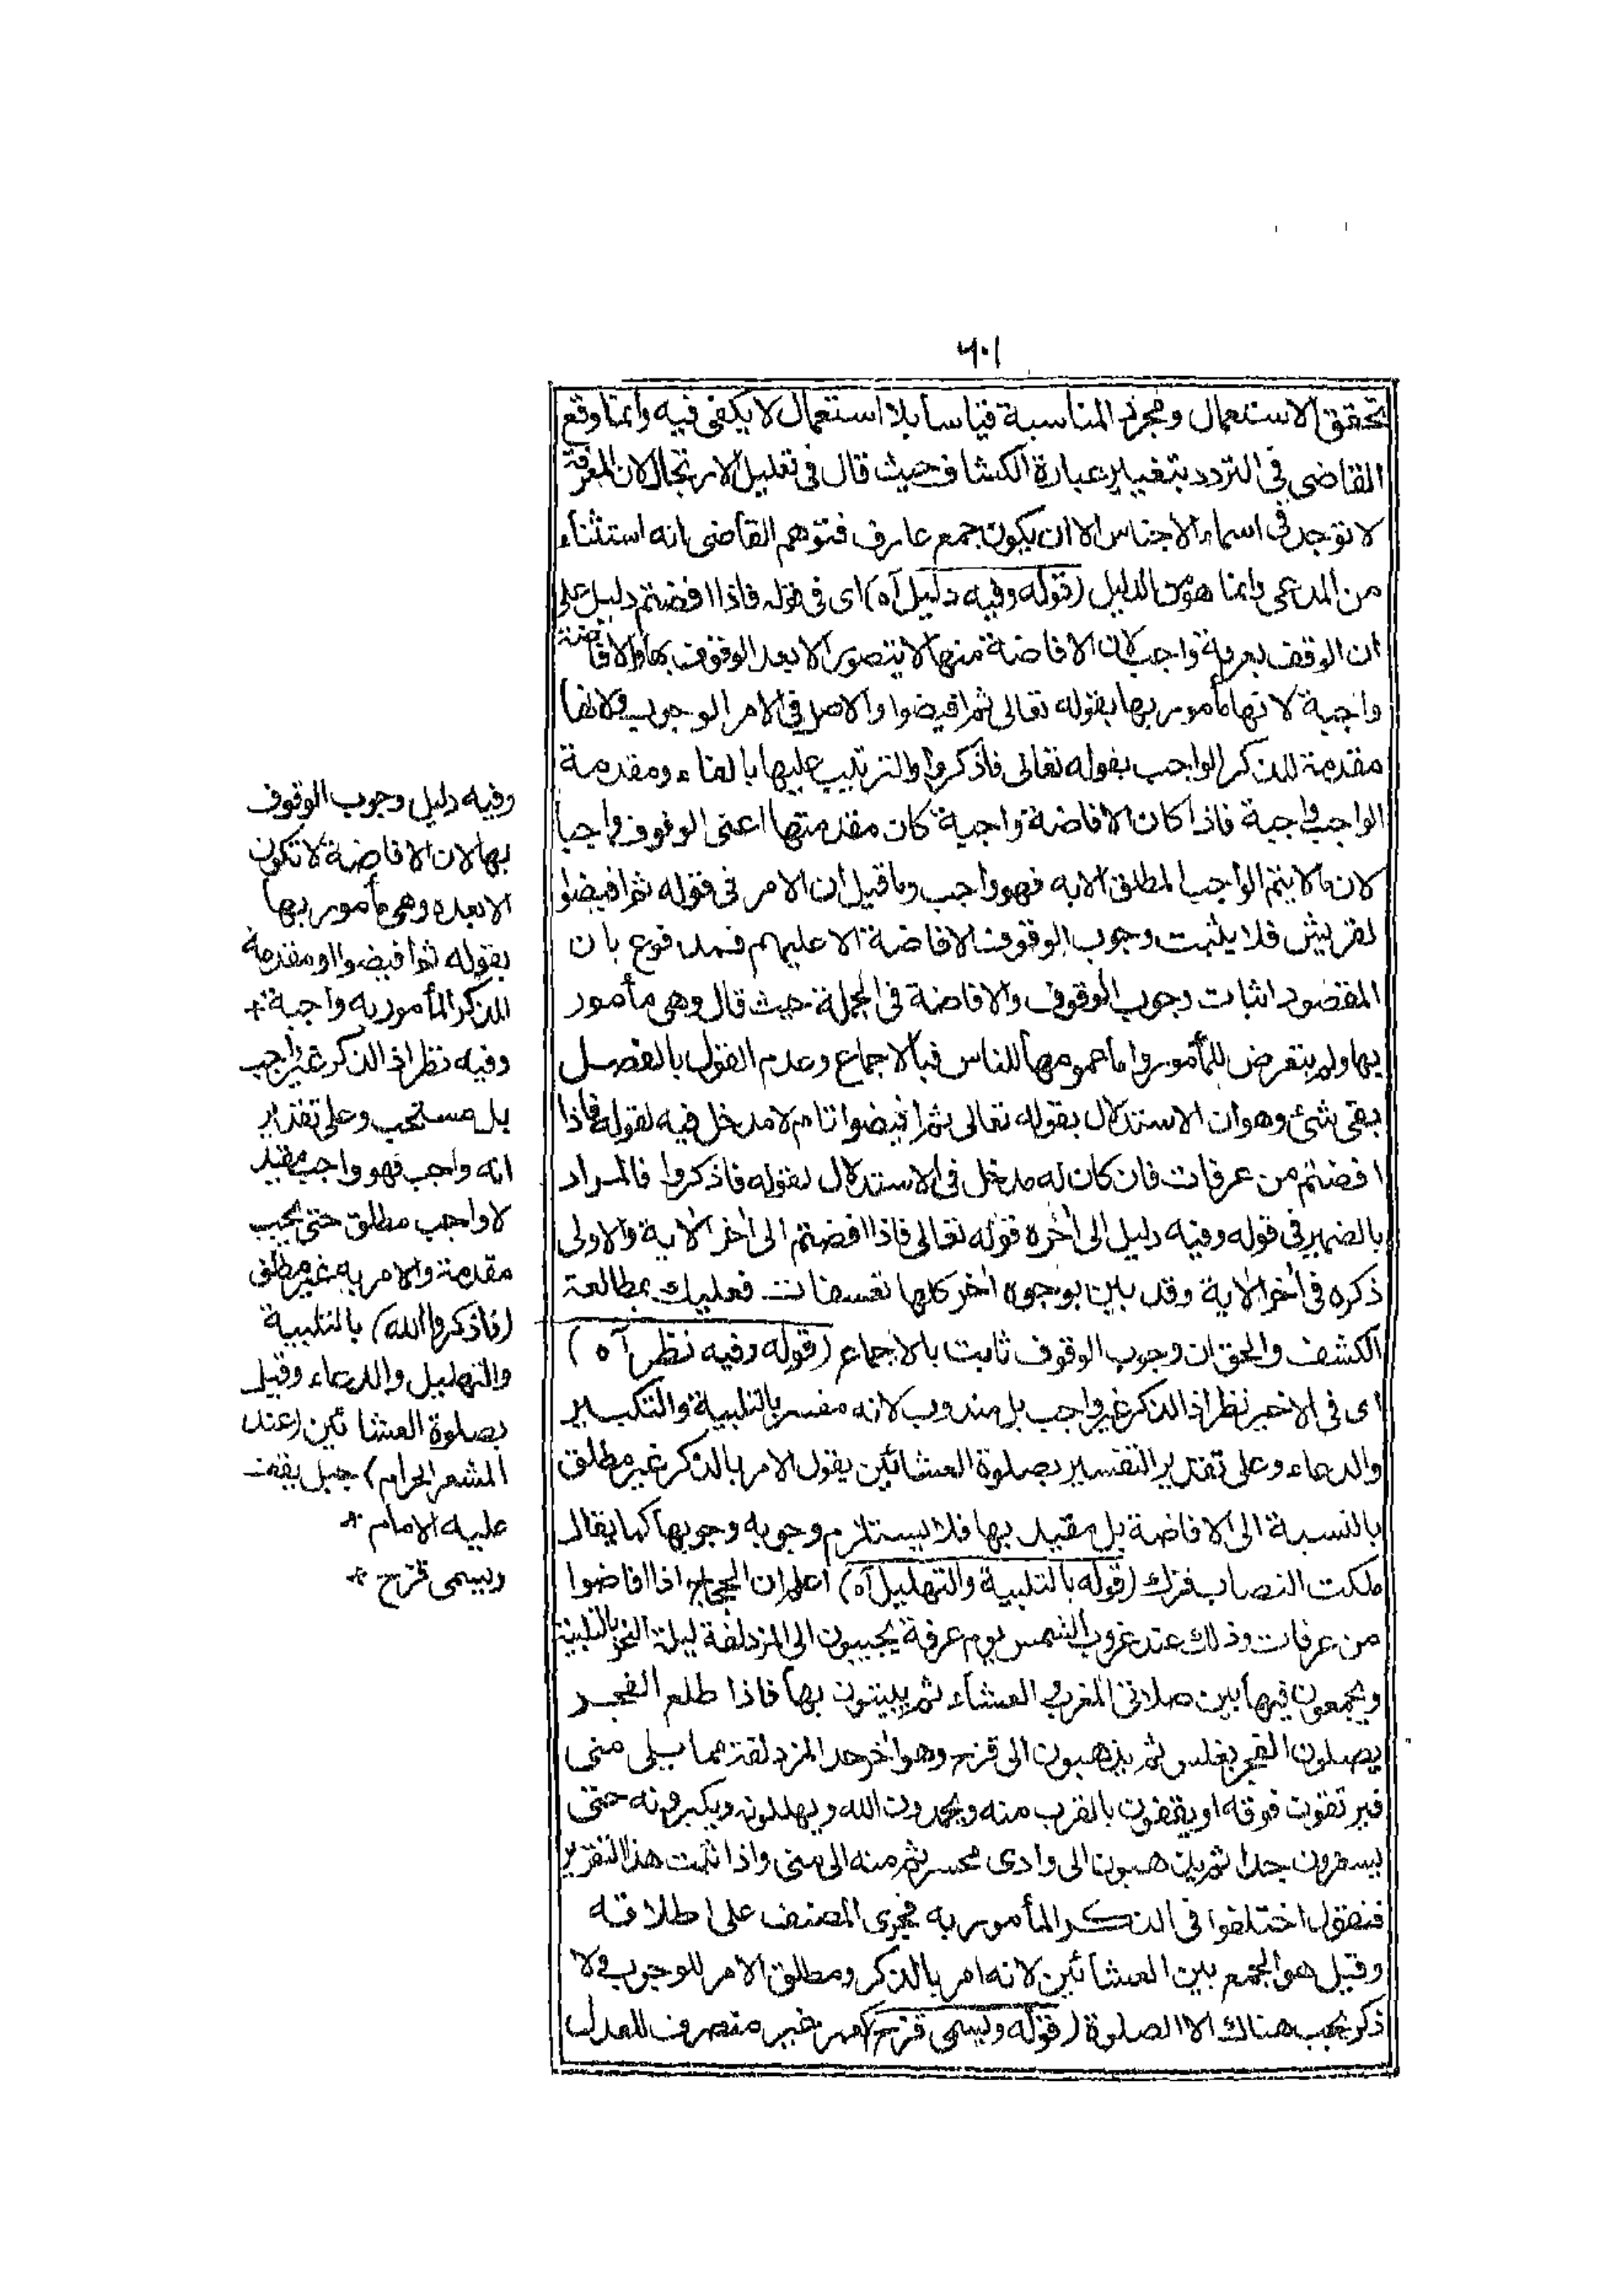 ٦٠١
تحقق الاستعمال ومجرد المناسبة قياسا بلا استعمال لا يكفى فيه وانما وقع
القاضى فى التردد بتغيير عبارة الكشاف حيث قال فى تعليل الارتجال لان المعرفة
لا توجد فى اسماء الاجناس الا ان يكون جمع عارف فتوهم القاضى انه استثناء
من المدعى وانما هو من الدليل (قوله وفيه دليل آه) اى فى قوله فاذا افضتم دليل على
ان الوقف بعرفة واجب لان الافاضة منها لا يتصور الا بعد الوقوف بها والافاضة
واجبة لانها مأمور بها بقوله تعالى ثم افيضوا والاصل فى الامر الوجوب ولانها
مقدمة للذكر الواجب بقوله تعالى فاذكروا والترتيب عليها بالفاء ومقدمة
الواجب واجبة فاذا كان الافاضة واجبة كان مقدمتها اعنى الوقوف واجبا
لان ما لا يتم الواجب المطلق الا به فهو واجب وما قيل ان الامر فى قوله ثم افيضوا
لقريش فلا يثبت وجوب الوقوف والافاضة الا عليهم فمدفوع بان
المقصود اثبات وجوب الوقوف والافاضة فى الجملة حيث قال وهى مأمور
بها ولم يتعرض للمأمور واما عمومها للناس فبالاجماع وعدم القول بالفصل
بقى شئ وهو ان الاستدلال بقوله تعالى ثم افيضوا تام لا مدخل فيه لقوله فاذا
افضتم من عرفات فان كان له مدخل فى الاستدلال بقوله فاذكروا فالمراد
بالضمير فى قوله وفيه دليل الى آخره قوله تعالى فاذا افضتم الى آخر الآية والاولى
ذكره فى آخر الآية وقد بين بوجوه اخر كلها تعسفات فعليك بمطالعة
الكشف والحق ان وجوب الوقوف ثابت بالاجماع (قوله وفيه نظر آه)
اى فى الاخير نظر اذ الذكر غير واجب بل مندوب لانه مفسر بالتلبية والتكبير
والدعاء وعلى تقدير التفسير بصلوة العشائين يقول الامر بالذكر غير مطلق
بالنسبة الى الافاضة بل مقيد بها فلا يستلزم وجوبه وجوبها كما يقال
ملكت النصاب فزك (قوله بالتلبية والتهليل آه) اعلم ان الحجاج اذا افاضوا
من عرفات وذلك عند غروب الشمس يوم عرفة يجيبون الى المزدلفة ليلة النحر بالتلبية
ويجمعون فيها بين صلاتى المغرب والعشاء ثم يبيتون بها فاذا طلع الفجر
يصلون الفجر بغلس ثم يذهبون الى قزح وهو آخر حد المزدلفة مما يلى منى
فيرتقون فوقه او يقفون بالقرب منه ويحمدون الله ويهللونه ويكبرونه حتى
يسفرون جدا ثم يذهبون الى وادى محسر ثم منه الى منى واذا ثبت هذا التقرير
فنقول اختلفوا فى الذكر المأمور به فجرى المصنف على اطلاقه
وقيل هو الجمع بين العشائين لانه امر بالذكر ومطلق الامر للوجوب ولا
ذكر يجب هناك الا الصلوة (قوله ويسمى قزح) كعمر غير منصرف للعدل
وفيه دليل وجوب الوقوف
بها لان الافاضة لا تكون
الا بعده وهى مأمور بها
بقوله ثم افيضوا او مقدمة
للذكر المأمور به واجبة*
وفيه نظر اذ الذكر غير واجب
بل مستحب وعلى تقدير
انه واجب فهو واجب مقيد
لا واجب مطلق حتى يجب
مقدمة والامر به غير مطلق
(فاذكروا الله) بالتلبية
والتهليل والدعاء وقيل
بصلوة العشائين (عند
المشعر الحرام) جبل يقف
عليه الامام *
ويسمى قزح *